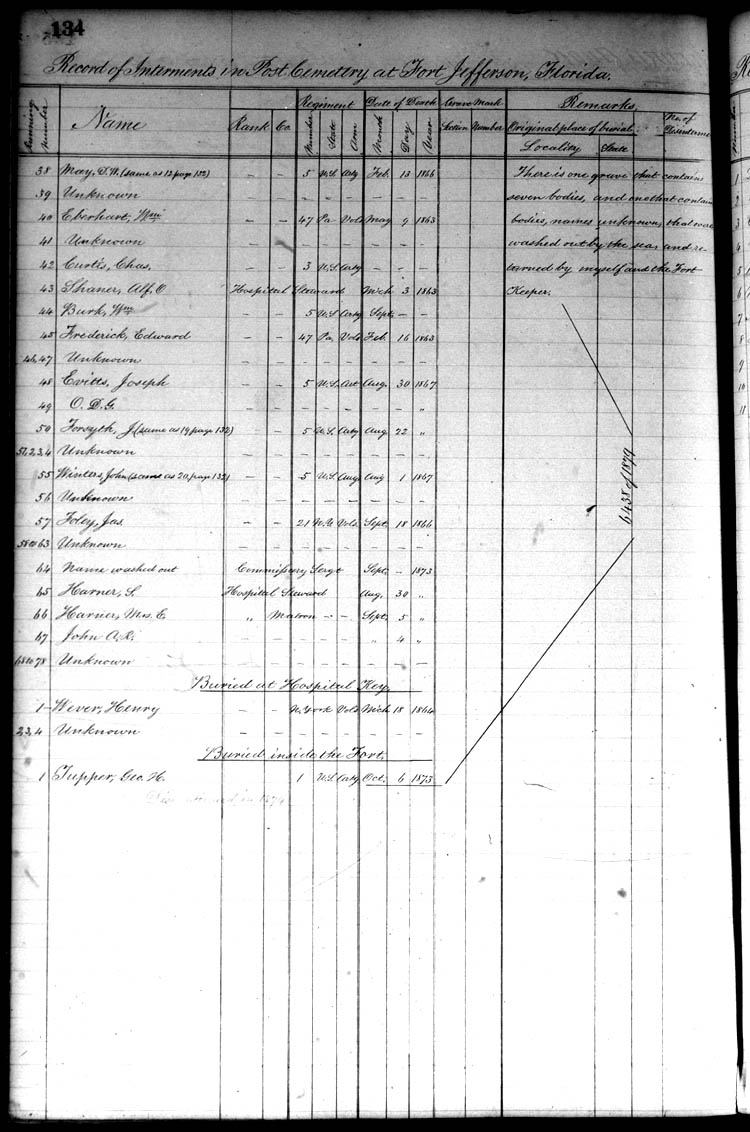 134
Record of Interments in Post Cemetery at Fort Jefferson, Florida.
Running Number
Name
Rank
Co.
Regiment
Number
State
Arm
Date of Death
Month
Day
Year
Grave Mark
Section
Number
Remarks
Original place of burial
Locality
State
No. of Disinterment
38 May, D.W. (same as 12 page 132) — — 5 U.S. Arty Feb. 13 1866 There is one grave that contains
39 Unknown — — — — — — — — seven bodies, and another contains
40 Eberhart, Wm — — 47 Pa Vols May 9 1863 bodies, names unknown, that were
41 Unknown — — — — — — — — washed out by the sea, and re-
42 Curtis, Chas. — — 3 U.S. Arty — — — turned by myself and the Fort
43 Shaner, Alf. O. Hospital Steward Mch 3 1863 Keeper.
44 Burk, Wm — — 5 U.S. Arty Sept. — —
45 Frederick, Edward — — 47 Pa. Vols Feb. 16 1863
46,47 Unknown — — — — — — — —
48 Evitts, Joseph — — 5 U.S. Art Aug. 30 1867
49 O. D. G. — — — — — — — "
50 Forsyth, J (same as 19 page 132) — — 5 U.S. Arty Aug 22 "
51,2,3,4 Unknown — — — — — — — —
55 Winters, John (same as 20, page 132) — — 5 U.S. Aug 1 1867
56 Unknown — — — — — — — —
57 Foley, Jas. — — 21 Vols Sept. 18 1866
58 to 63 Unknown — — — — — — — —
64 Name washed out Commissary Sergt Sept. — 1873
65 Harner, S. Hospital Steward Aug. 30 "
66 Harner, Mrs. E. " Matron — — Sept. 5 "
67 John A. R. — — — — — " 4 "
68 to 78 Unknown — — — — — — — —
Buried at Hospital Key.
1 Wever, Henry — — N. York Vols Mch 18 1864
2,3,4 Unknown — — — — — — — —
Buried inside the Fort.
1 Tupper, Geo. H. — — 1 U.S. Arty Oct. 6 1873
6438 of 1879
in 1874